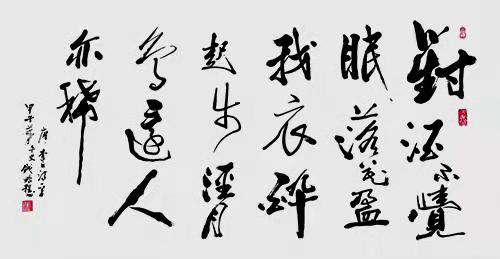 對酒不覺
眠落花盈
我衣醉
起步溪月
鳥還人
亦稀
唐李白诗
甲午